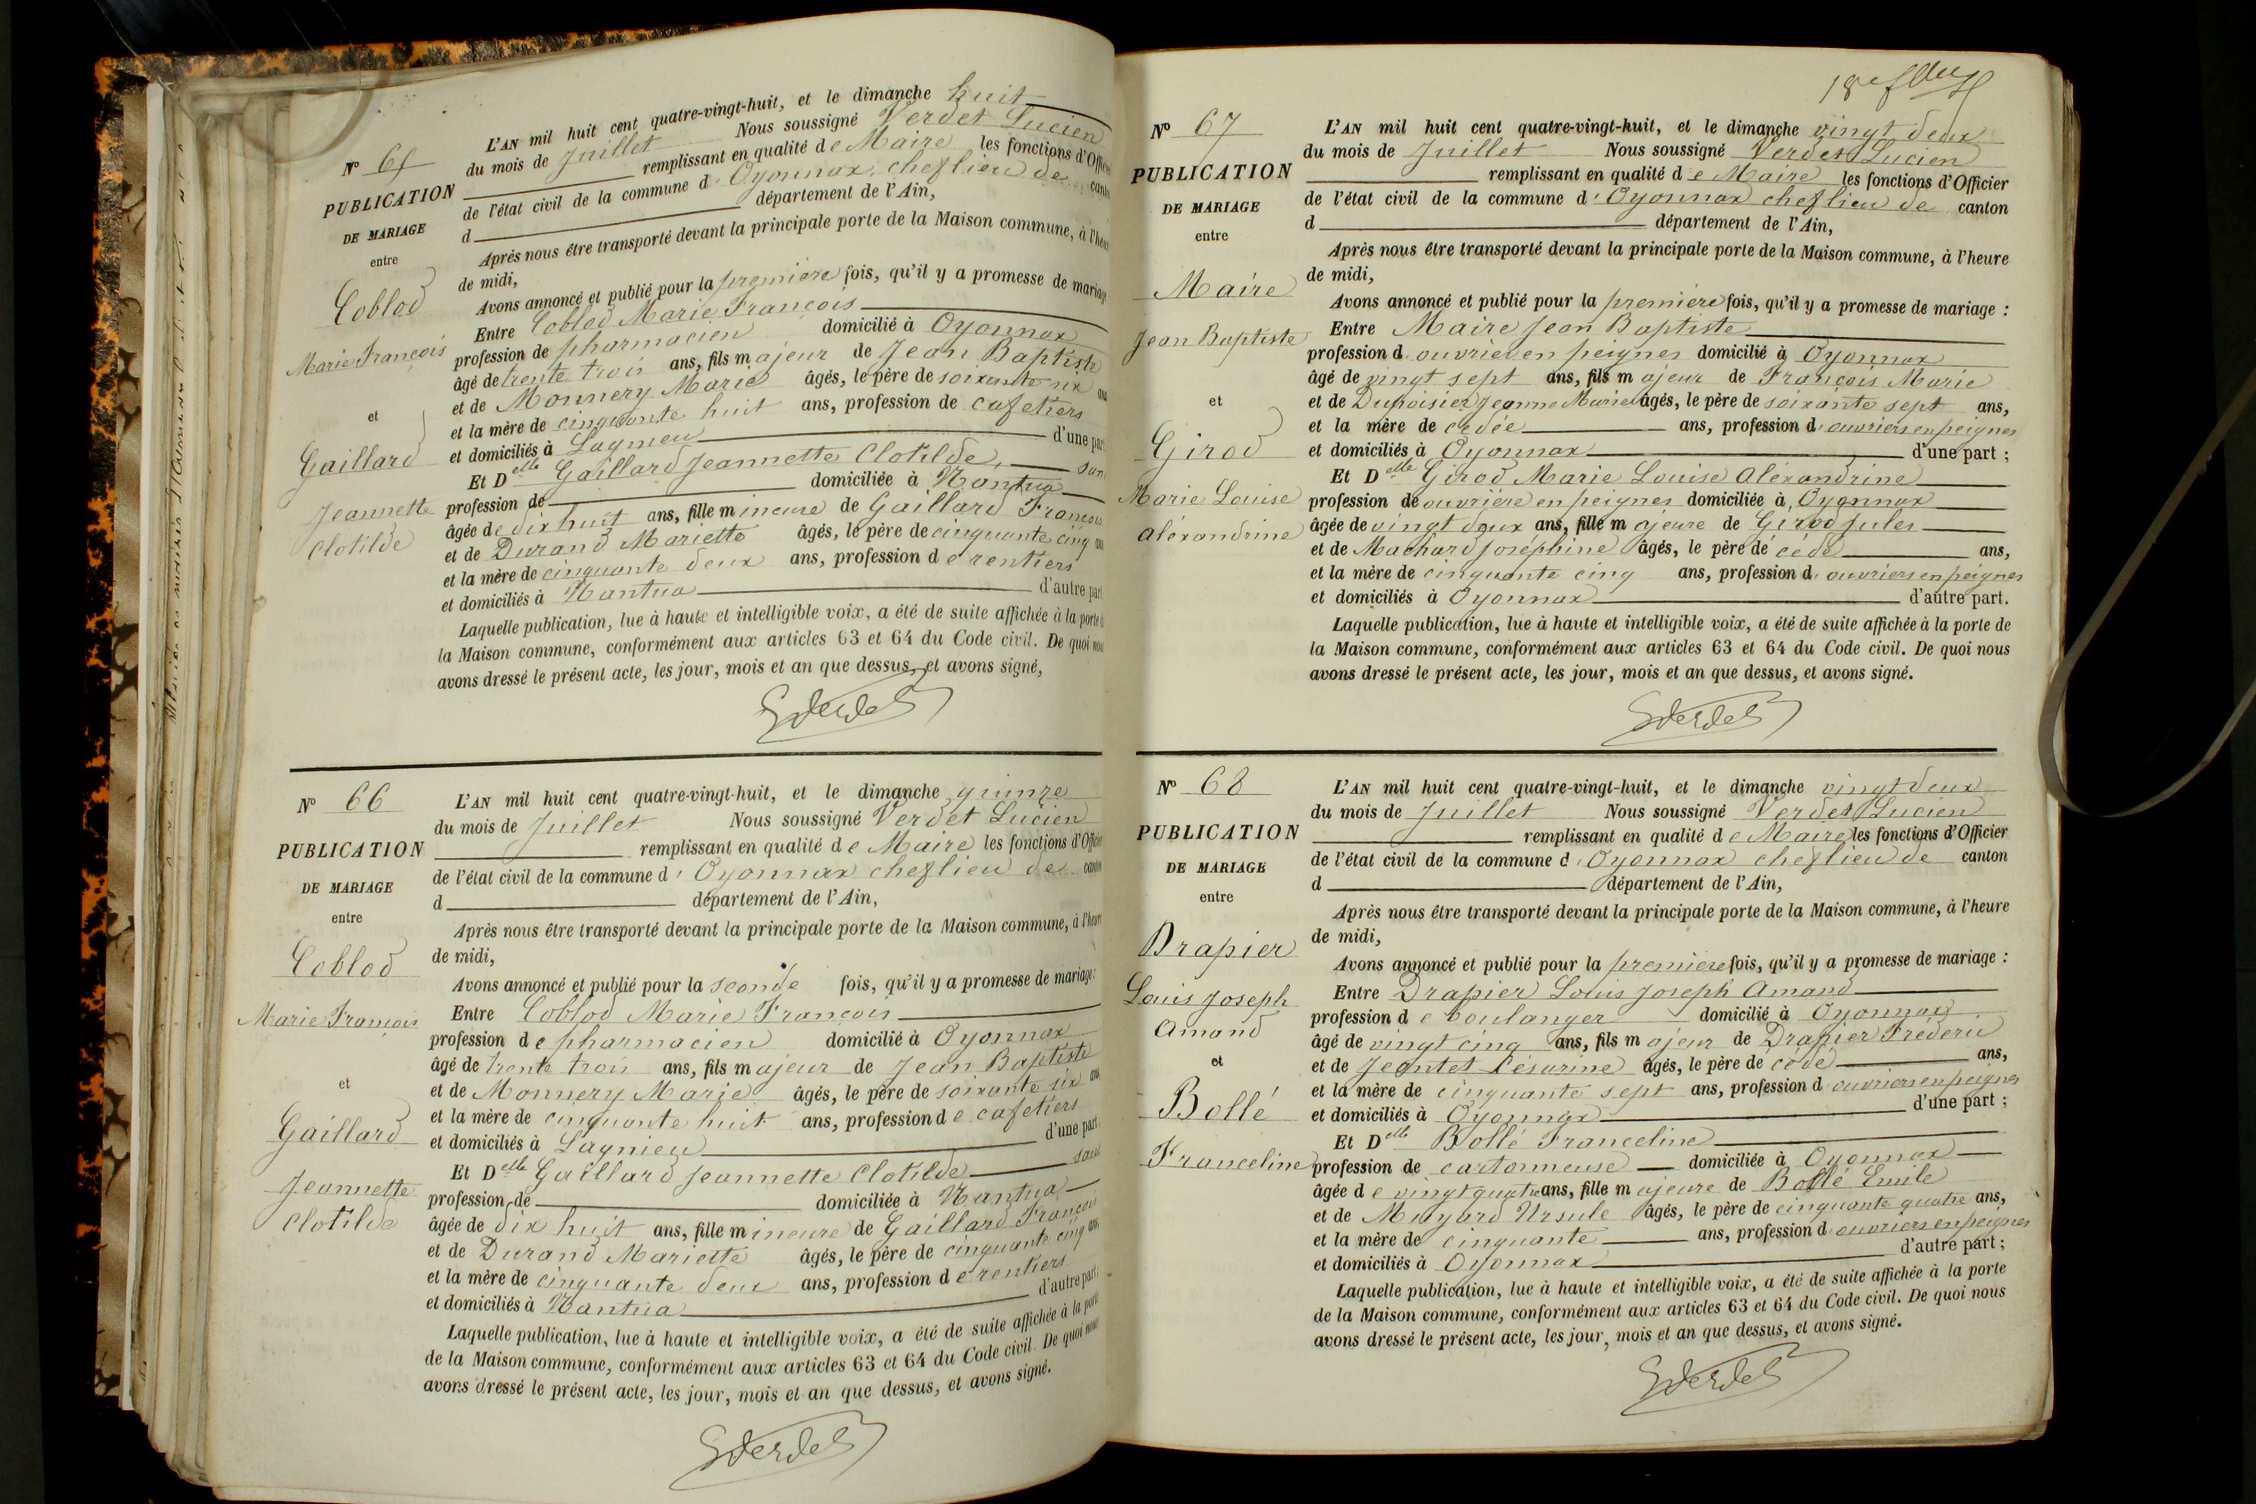 Nº 65
PUBLICATION
DE MARIAGE
entre
Coblod
Marie François
et
Gaillard
Jeannette
Clotilde
L'AN mil huit cent quatre-vingt-huit, et le dimanche huit
du mois de Juillet Nous soussigné Verdet Lucien
remplissant en qualité de Maire les fonctions d'Officier
de l'état civil de la commune d' Oyonnax chef lieu de canton
d département de l'Ain,
Après nous être transporté devant la principale porte de la Maison commune, à l'heure
de midi,
Avons annoncé et publié pour la première fois, qu'il y a promesse de mariage
Entre Coblod Marie François
profession de pharmacien domicilié à Oyonnax
âgé de trente trois ans, fils majeur de Jean Baptiste
et de Monnery Marie âgés, le père de soixante six ans
et la mère de cinquante huit ans, profession de cafetiers
et domiciliés à Lagnieu d'une part
Et Delle Gaillard Jeannette Clotilde, sans
profession de domiciliée à Nantua
âgée de dix huit ans, fille mineure de Gaillard François
et de Durand Mariette âgés, le père de cinquante cinq ans
et la mère de cinquante deux ans, profession de rentiers
et domiciliés à Nantua d'autre part
Laquelle publication, lue à haute et intelligible voix, a été de suite affichée à la porte de
la Maison commune, conformément aux articles 63 et 64 du Code civil. De quoi nous
avons dressé le présent acte, les jour, mois et an que dessus, et avons signé,
LVerdet
Nº 66
PUBLICATION
DE MARIAGE
entre
Coblod
Marie François
et
Gaillard
Jeannette
Clotilde
L'AN mil huit cent quatre-vingt-huit, et le dimanche quinze
du mois de Juillet Nous soussigné Verdet Lucien
remplissant en qualité de Maire les fonctions d'Officier
de l'état civil de la commune d' Oyonnax chef lieu de canton
d département de l'Ain,
Après nous être transporté devant la principale porte de la Maison commune, à l'heure
de midi,
Avons annoncé et publié pour la seconde fois, qu'il y a promesse de mariage:
Entre Coblod Marie François
profession de pharmacien domicilié à Oyonnax
âgé de trente trois ans, fils majeur de Jean Baptiste
et de Monnery Marie âgés, le père de soixante six ans
et la mère de cinquante huit ans, profession de cafetiers
et domiciliés à Lagnieu d'une part
Et Delle Gaillard Jeannette Clotilde sans
profession de domiciliée à Nantua
âgée de dix huit ans, fille mineure de Gaillard François
et de Durand Mariette âgés, le père de cinquante cinq ans
et la mère de cinquante deux ans, profession de rentiers
et domiciliés à Nantua d'autre part.
Laquelle publication, lue à haute et intelligible voix, a été de suite affichée à la porte
de la Maison commune, conformément aux articles 63 et 64 du Code civil. De quoi nous
avons dressé le présent acte, les jour, mois et an que dessus, et avons signé.
LVerdet
18e
Nº 67
PUBLICATION
DE MARIAGE
entre
Maire
Jean Baptiste
et
Girod
Marie Louise
Aléxandrine
L'AN mil huit cent quatre-vingt-huit, et le dimanche vingt deux
du mois de Juillet Nous soussigné Verdet Lucien
remplissant en qualité de Maire les fonctions d'Officier
de l'état civil de la commune d' Oyonnax chef lieu de canton
d département de l'Ain,
Après nous être transporté devant la principale porte de la Maison commune, à l'heure
de midi,
Avons annoncé et publié pour la première fois, qu'il y a promesse de mariage :
Entre Maire Jean Baptiste
profession d' ouvrier en peignes domicilié à Oyonnax
âgé de vingt sept ans, fils majeur de François Marie
et de Dupoisier Jeanne Marie âgés, le père de soixante sept ans,
et la mère de cédée ans, profession d' ouvriers en peignes
et domiciliés à Oyonnax d'une part ;
Et Delle Girod Marie Louise Aléxandrine
profession de ouvrière en peignes domiciliée à Oyonnax
âgée de vingt deux ans, fille majeure de Girod Jules
et de Machard Joséphine âgés, le père de cédé ans,
et la mère de cinquante cinq ans, profession d' ouvriers en peignes
et domiciliés à Oyonnax d'autre part.
Laquelle publication, lue à haute et intelligible voix, a été de suite affichée à la porte de
la Maison commune, conformément aux articles 63 et 64 du Code civil. De quoi nous
avons dressé le présent acte, les jour, mois et an que dessus, et avons signé.
LVerdet
Nº 68
PUBLICATION
DE MARIAGE
entre
Drapier
Louis Joseph
Amand
et
Bollé
Franceline
L'AN mil huit cent quatre-vingt-huit, et le dimanche vingt deux
du mois de Juillet Nous soussigné Verdet Lucien
remplissant en qualité de Maire les fonctions d'Officier
de l'état civil de la commune d' Oyonnax chef lieu de canton
d département de l'Ain,
Après nous être transporté devant la principale porte de la Maison commune, à l'heure
de midi,
Avons annoncé et publié pour la première fois, qu'il y a promesse de mariage :
Entre Drapier Louis Joseph Amand
profession de boulanger domicilié à Oyonnax
âgé de vingt cinq ans, fils majeur de Drapier Frédéric
et de Jeantet Césarine âgés, le père de cédé ans,
et la mère de cinquante sept ans, profession d' ouvriers en peignes
et domiciliés à Oyonnax d'une part ;
Et Delle Bollé Franceline
profession de cartonneuse domiciliée à Oyonnax
âgée de vingt quatre ans, fille majeure de Bollé Emile
et de Muyard Ursule âgés, le père de cinquante quatre ans,
et la mère de cinquante ans, profession d' ouvriers en peignes
et domiciliés à Oyonnax d'autre part ;
Laquelle publication, lue à haute et intelligible voix, a été de suite affichée à la porte
de la Maison commune, conformément aux articles 63 et 64 du Code civil. De quoi nous
avons dressé le présent acte, les jour, mois et an que dessus, et avons signé.
LVerdet